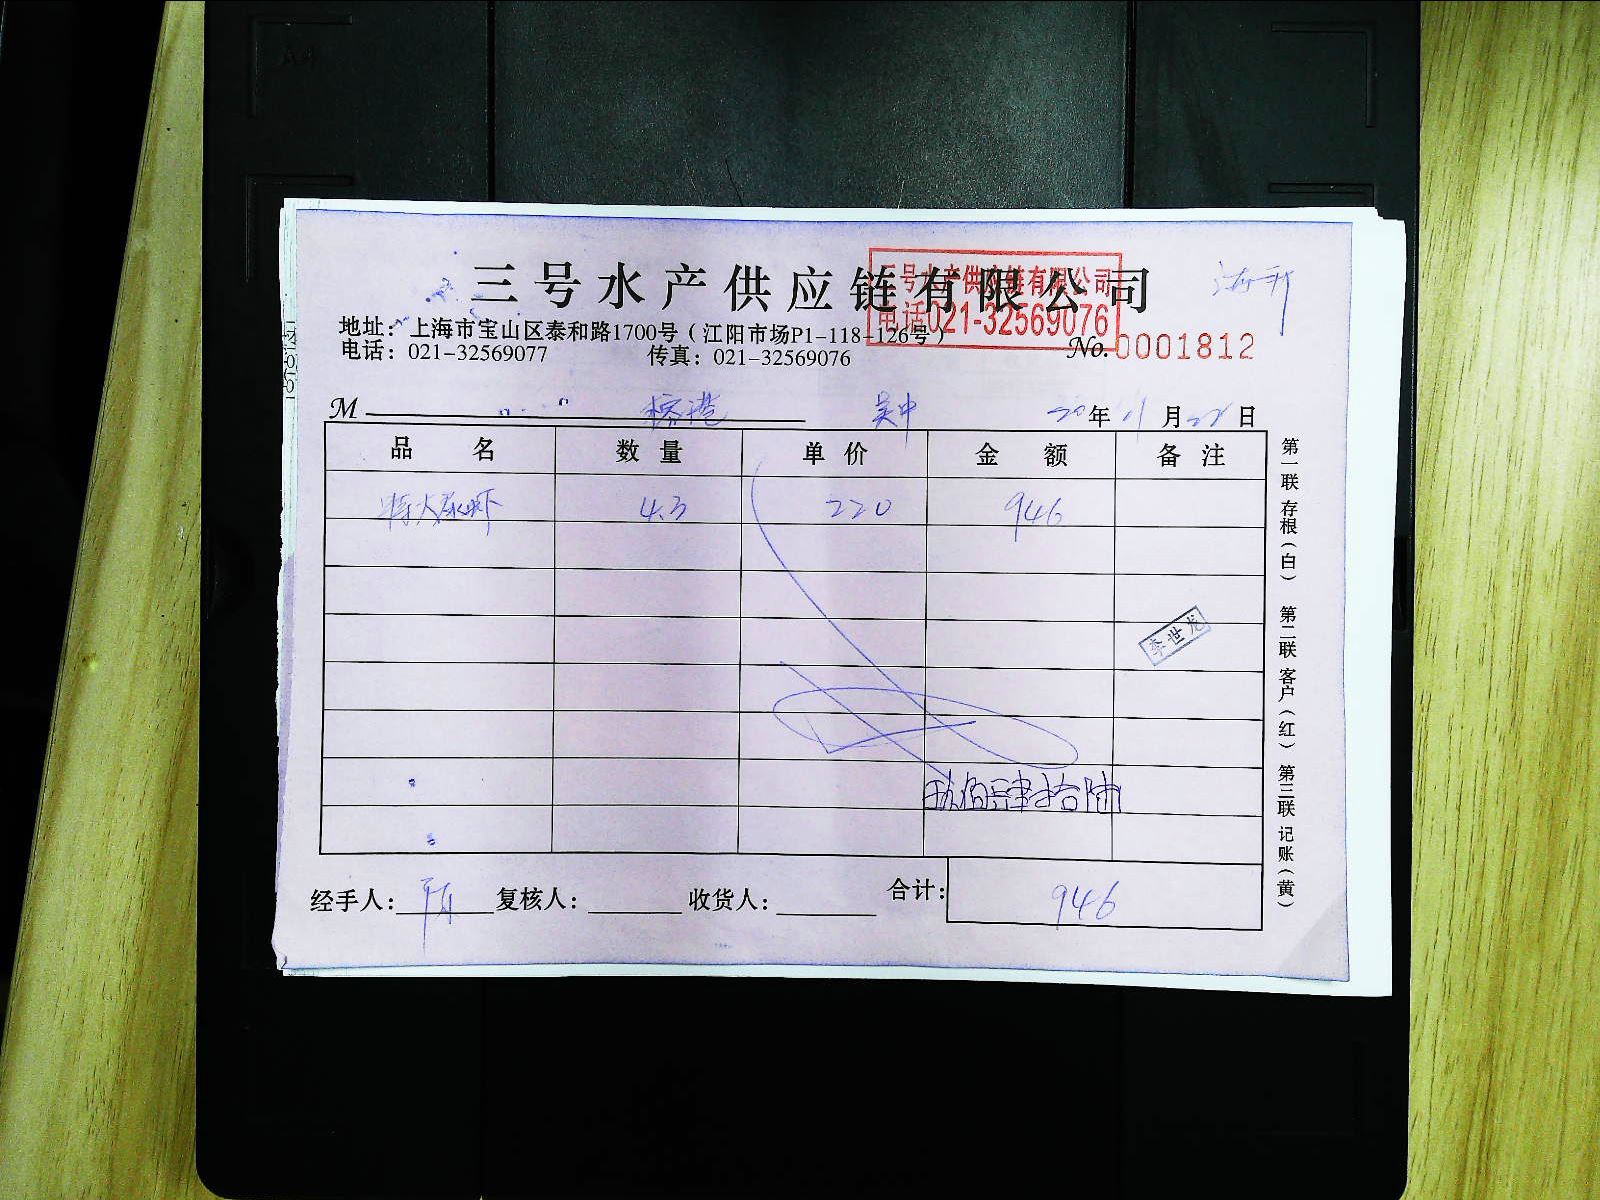 三号水产供应链有限公司
三号水产供应链有限公司
电话021-32569076
地址：上海市宝山区泰和路1700号（江阳市场P1-118-126号）
电话：021-32569077 传真：021-32569076
No. 0001812
M 榕港 吴中 20年11月22日
品 名 数 量 单 价 金 额 备 注
特大尿虾 4.3 220 946
李世龙
玖佰肆拾陆
经手人： 复核人： 收货人： 合计： 946
第一联 存根（白） 第二联 客户（红） 第三联 记账（黄）